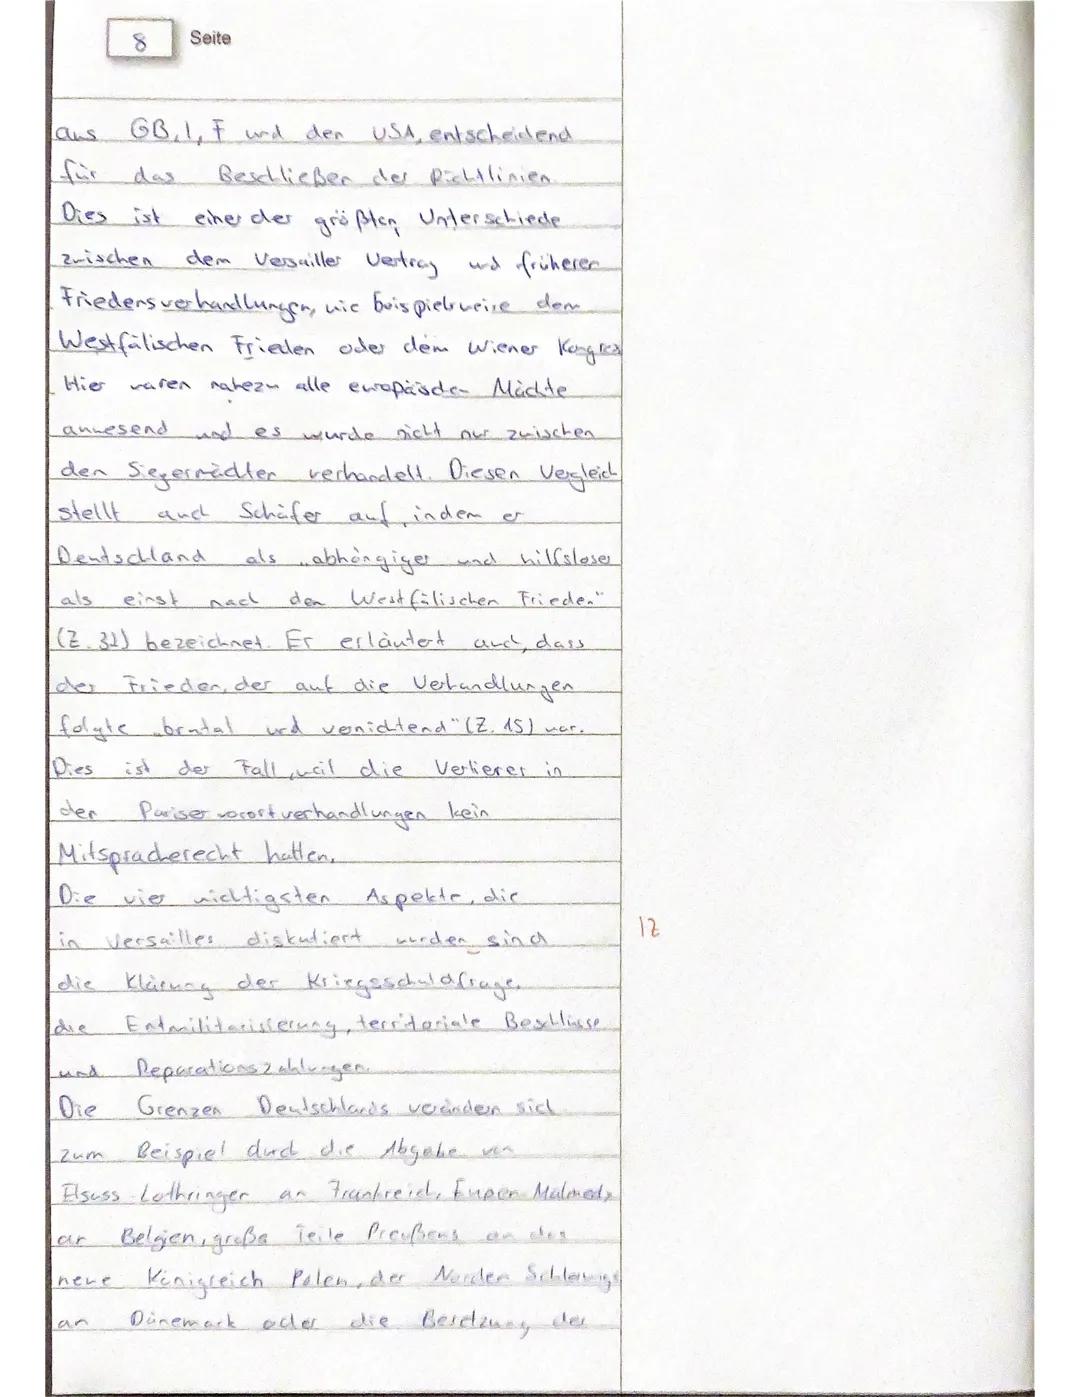 8 Seite
aus GB, I, F und den USA, entscheidend
für das Beschließen der Richtlinien.
Dies ist einer der größten Unterschiede
zwischen dem Versailler Vertrag und früheren
Friedensverhandlungen, wie beispielsweise dem
Westfälischen Frieden oder dem Wiener Kongress
. Hier waren nahezu alle europäischen Mächte
anwesend und es wurde nicht nur zwischen
den Siegermächten verhandelt. Diesen Vergleich
stellt auch Schäfer auf, indem er
Deutschland als „abhängiger und hilfsloser
als einst nach dem Westfälischen Frieden"
(Z. 31) bezeichnet. Er erläutert auch, dass
der Frieden, der auf die Verhandlungen
folgte „brutal und vernichtend" (Z. 15) war.
Dies ist der Fall, weil die Verlierer in
den Pariser vorortverhandlungen kein
Mitspracherecht hatten.
Die vier wichtigsten Aspekte, die
in Versailles diskutiert wurden sind
IZ
die Klärung der Kriegsschuldfrage,
die Entmilitarisierung, territoriale Beschlüsse
und Reparationszahlungen.
Die Grenzen Deutschlands verändern sich
zum Beispiel durch die Abgabe von
Elsass-Lothringen an Frankreich, Eupen-Malmedy
an Belgien, große Teile Preußens an das
neue Königreich Polen, der Norden Schleswigs
an Dänemark oder die Besetzung des